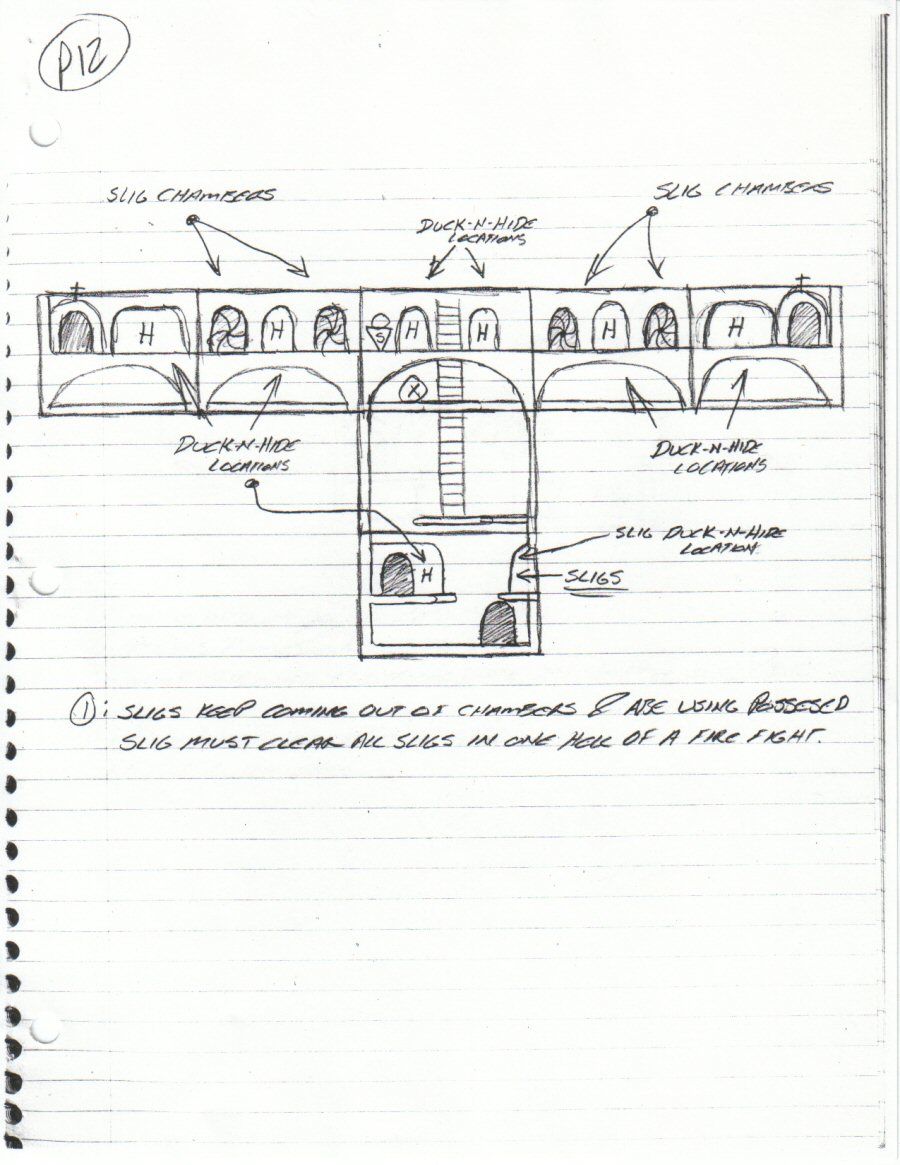 P12
SLIG CHAMBERS
SLIG CHAMBERS
DUCK-N-HIDE
LOCATIONS
H
H
S
H
H
H
H
X
DUCK-N-HIDE
LOCATIONS
DUCK-N-HIDE
LOCATIONS
SLIG DUCK-N-HIDE
LOCATION
H
SLIGS
1: SLIGS KEEP COMING OUT OF CHAMBERS & ABE USING POSSESED
SLIG MUST CLEAR ALL SLIGS IN ONE HELL OF A FIRE FIGHT.